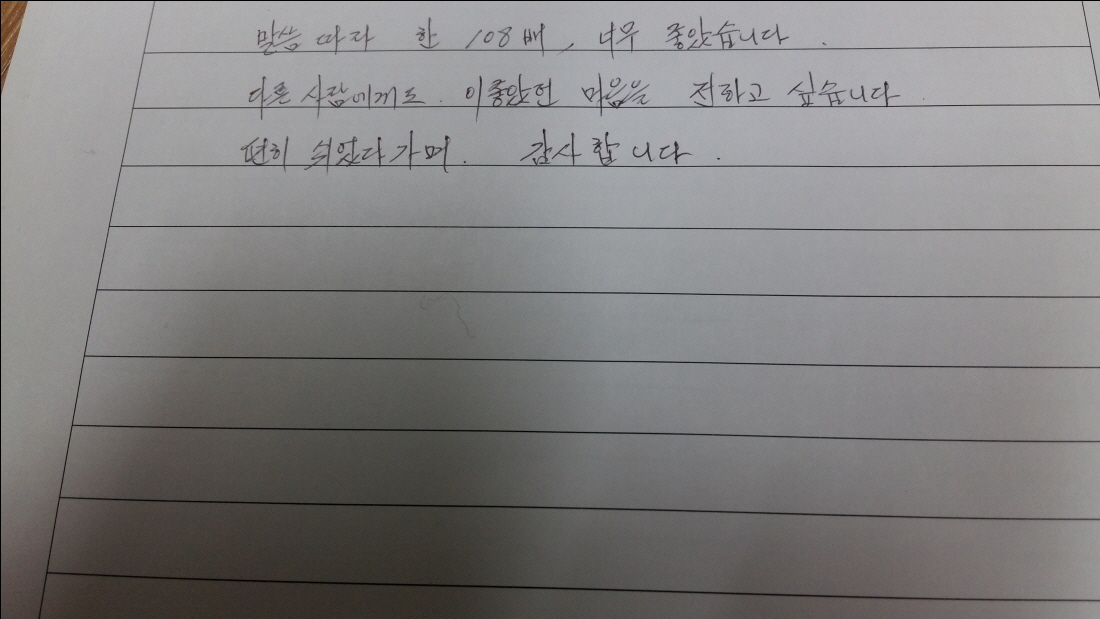 말씀 따라 한 108배, 너무 좋았습니다.
다른 사람에게도. 이좋았던 마음을 전하고 싶습니다.
편히 쉬었다가며. 감사합니다.